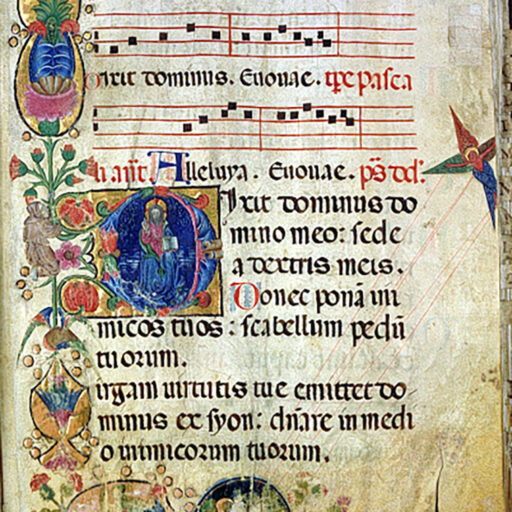 Dixit dominus. Euouae. tpe pasca
añt Alleluya. Euouae. ps̄
Dixit dominus do
mino meo: sede
a dextris meis.
Donec ponā ini
micos tuos: scabellum pedū
tuorum.
irgam uirtutis tue emittet do
minus ex syon: dñare in medi
o inimicorum tuorum.